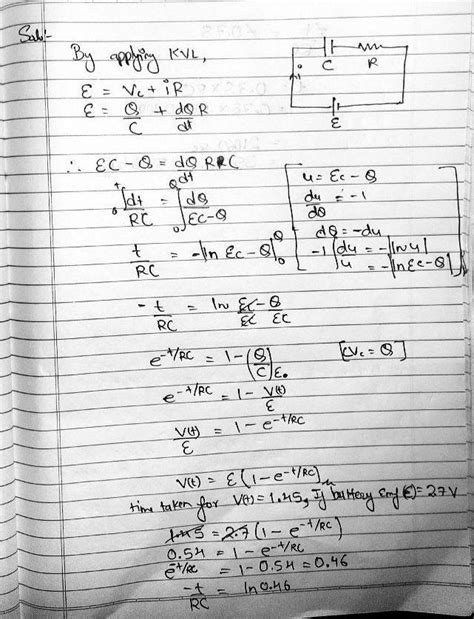 Soln:-
By applying KVL,
C
R
i
ε
ε = Vc + iR
ε = Q/C + dQ/dt R
∴ εC - Q = dQ/dt RC
∫₀ᵗ dt/RC = ∫₀^Q dQ/(εC-Q)
u = εc - Q
du/dQ = -1
dQ = -du
-1∫du/u = -|ln u|
= -|ln εc-Q|
t/RC = -|ln εc-Q|₀^Q
-t/RC = ln εC/εC - Q/εC
e^-t/RC = 1-(Q/C)1/ε
[CVc = Q]
e^-t/RC = 1- V(t)/ε
V(t)/ε = 1 - e^-t/RC
V(t) = ε(1-e^-t/RC)
time taken for V(t)=1.45, If battery emf(ε)=27V
1.45 = 2.7(1-e^-t/RC)
0.54 = 1-e^-t/RC
e^-t/RC = 1-0.54=0.46
-t/RC = ln 0.46